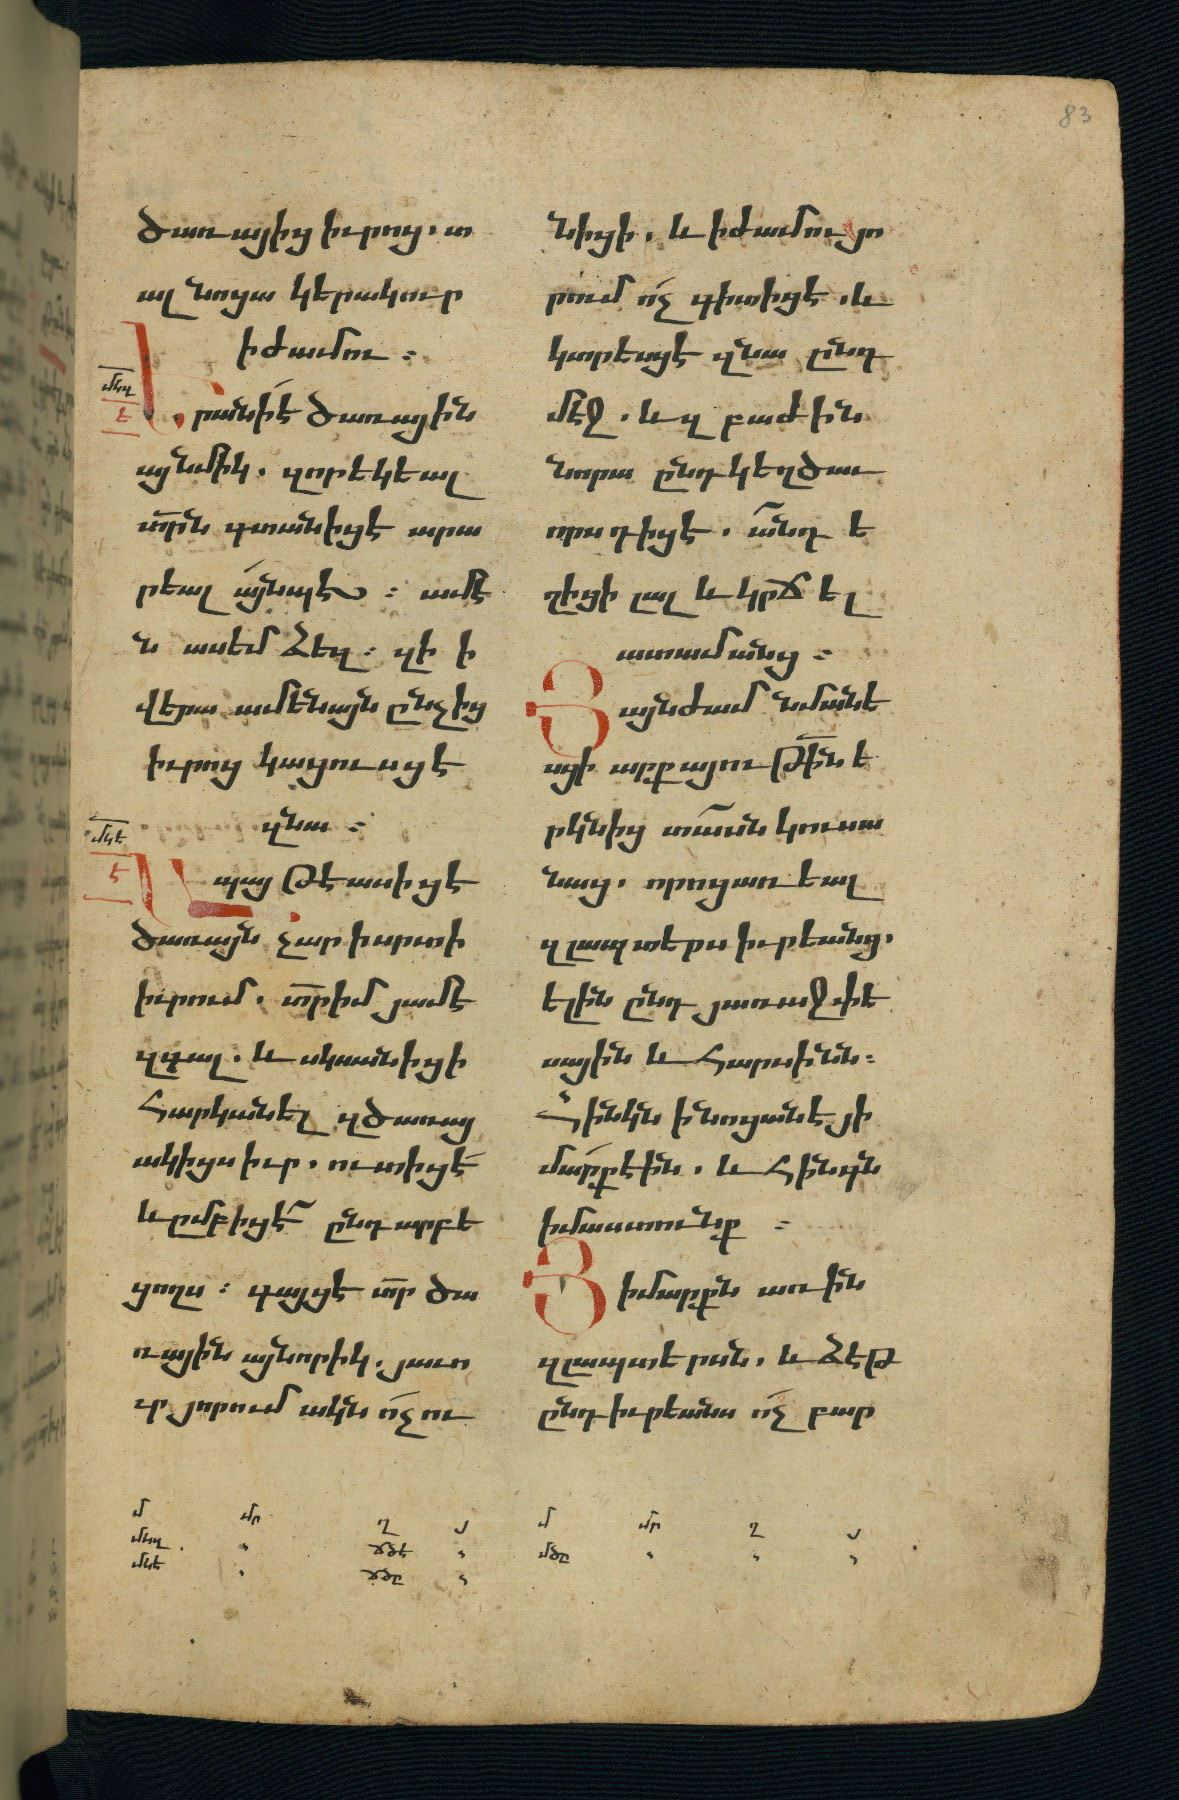 83
ծառայից իւրոց. տ
ալ նոցա կերակուր
ի ժամու :
մկդ
Երանի է ծառային
է
այնմիկ. զոր եկեալ
տրն գտանիցէ արա
րեալ այնպէս : ամէ
ն ասեմ ձեզ : զի ի
վերա ամենայն ընչից
իւրոց կացուսցէ
զնա :
մկե
Ապա թէ ասիցէ
է
ծառայն չար ի սրտի
իւրում. տր իմ յամէ
զգալ. և սկսանիցի
հարկանել զծառայ
ակիցս իւր. ուտիցէ
և ըմբիցէ ընդ արբե
ցողս : գայցէ տր ծա
ռային այնորիկ. յաւո
ւր յորում ակն ոչ ու
նիցի. և ի ժամու յո
րում ոչ գիտիցէ. և
կտրեսցէ զնա ընդ
մէջ. և զբաժին
նորա ընդ կեղծաւ
որս դիցէ. անդ ե
ղիցի լալ և կրճել
ատամանց :
Յայնժամ նմանե
սցի արքայութին ե
րկնից տասն կուսա
նաց. որոց առեալ
զլապտերս իւրեանց.
ելին ընդ յառաջ փե
սային և հարսինն :
Հինկն ի նոցանէ յի
մարքէին. և հինգն
իմաստունք :
Յիմարքն առին
զլապտերսն. և ձէթ
ընդ իւրեանս ոչ բար
մ մր ղ յ
մկդ ճծէ
մկե ճծը
մ մր ղ յ
մծը